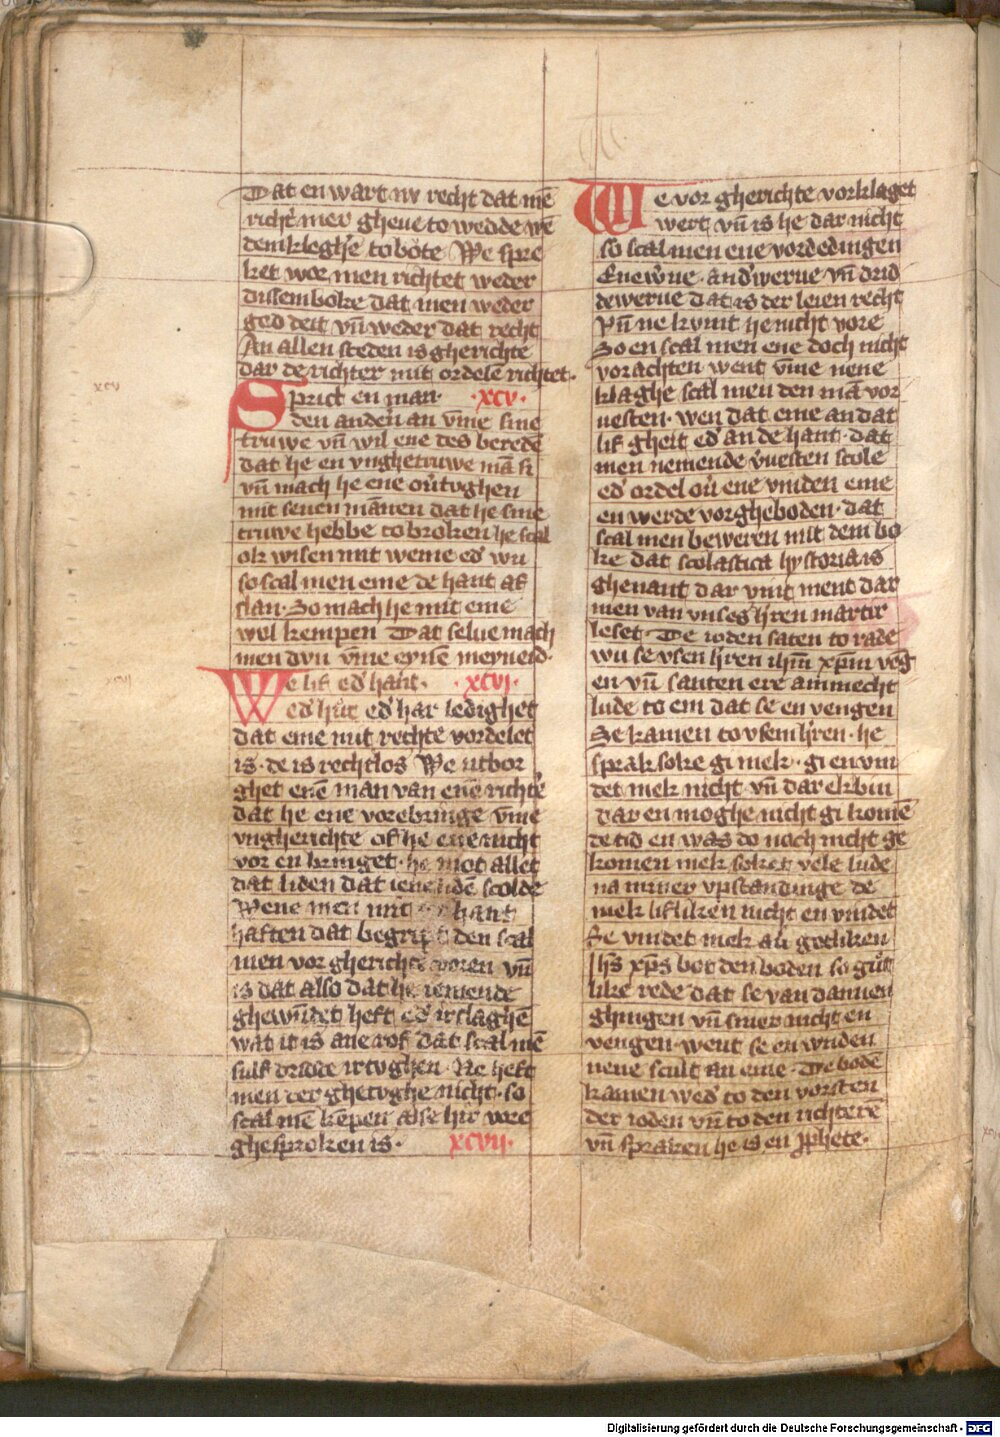 Dat en wart ny recht dat mē
richt̾ mer gheue to wedde wē
dem kleghe̾ to bote We spre
ket wor men richtet weder
dissem boke dat men weder
god deit vn̄ weder dat recht
An allen steden is gherichte
dar de richter mit ordelē richtet·
Sprict en man· ·xcv·
den anden̾ an vm̄e sine
truwe vn̄ wil ene des beredē
dat he en vnghetruwe mā si
vn̄ mach he ene ou̾tughen
mit seuen mānen dat he sine
truwe hebbe to broken he scal
ok wisen mit weme ed̾ wu
so scal men eme de hant af
slan· So mach he mit eme
wol kempen Dat selue mach
men dun vm̄e eynē meyneid·
We lif ed̾ hant· ·xcvi·
ed̾ hut ed̾ har ledighet
dat eme mit rechte vordelet
is· de is rechtlos We utbor
ghet enē man van enē richte̾
dat he ene vorebringe vm̄e
vngherichte of he ene nicht
vor en bringet· he mot allet
dat liden dat iene lidē scolde
Wene men mit hant
haften dat begript den scal
men vor gherichte voren vn̄
is dat also dat he iemende
ghewūdet heft ed̾ irslaghē
wat it is ane rof dat scal mē
sulf dridde irtughen· Ne heft
men der ghetughe nicht· so
scal mē kēpen alse hir vore
ghesproken is· xcvii·
We vor gherichte vorklaget
wert vn̄ is he dar nicht
so scal men ene vordedingen
Enew̾ue· and̾werue vn̄ drid
dewerue dat is der leien recht
Vn̄ ne kumt he nicht vore
So en scal men ene doch nicht
vorachten went vm̄e nene
klaghe scal men den mā vor
uesten· wen dat eme an dat
lif gheit ed̾ an de hant· dat
men nemende v̾uesten scole
ed̾ ordel ou̾ ene vinden eme
en werde vorgheboden· dat
scal men beweren mit dem bo
ke dat scolastica hystoria is
ghenant dar vint ment dar
men van vnses h̾ren martir
leset· De ioden saten to rade
wu se vsen h̾ren ih̄m xp̄m vēg
en vn̄ santen ere ammecht
lude to em dat se en vengen
Se kamen to vsem h̾ren· he
sprak soke gi mek· gi en vin
det mek nicht vn̄ dar ek bin
dar en moghe nicht gi komē
de tid en was do noch nicht ge
komen mek soket vele lude
na miner vpstandinge de
mek lifliken nicht en vindet
Se vindet mek au̾ gotliken
Ih̄s xp̄s bot den boden so gut
like rede dat se van dannen
ghingen vn̄ siner nicht en
vengen· went se en wnden
nene scult an eme· De bodē
kamen wed̾ to den vorsten
der ioden vn̄ to den richterē
vn̄ spraken he is en p̄phete·
xcv
xcvi
Digitalisierung gefördert durch die Deutsche Forschungsgemeinschaft - DFG